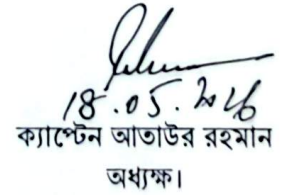 18.05.2026
ক্যাপ্টেন আতাউর রহমান
অধ্যক্ষ।